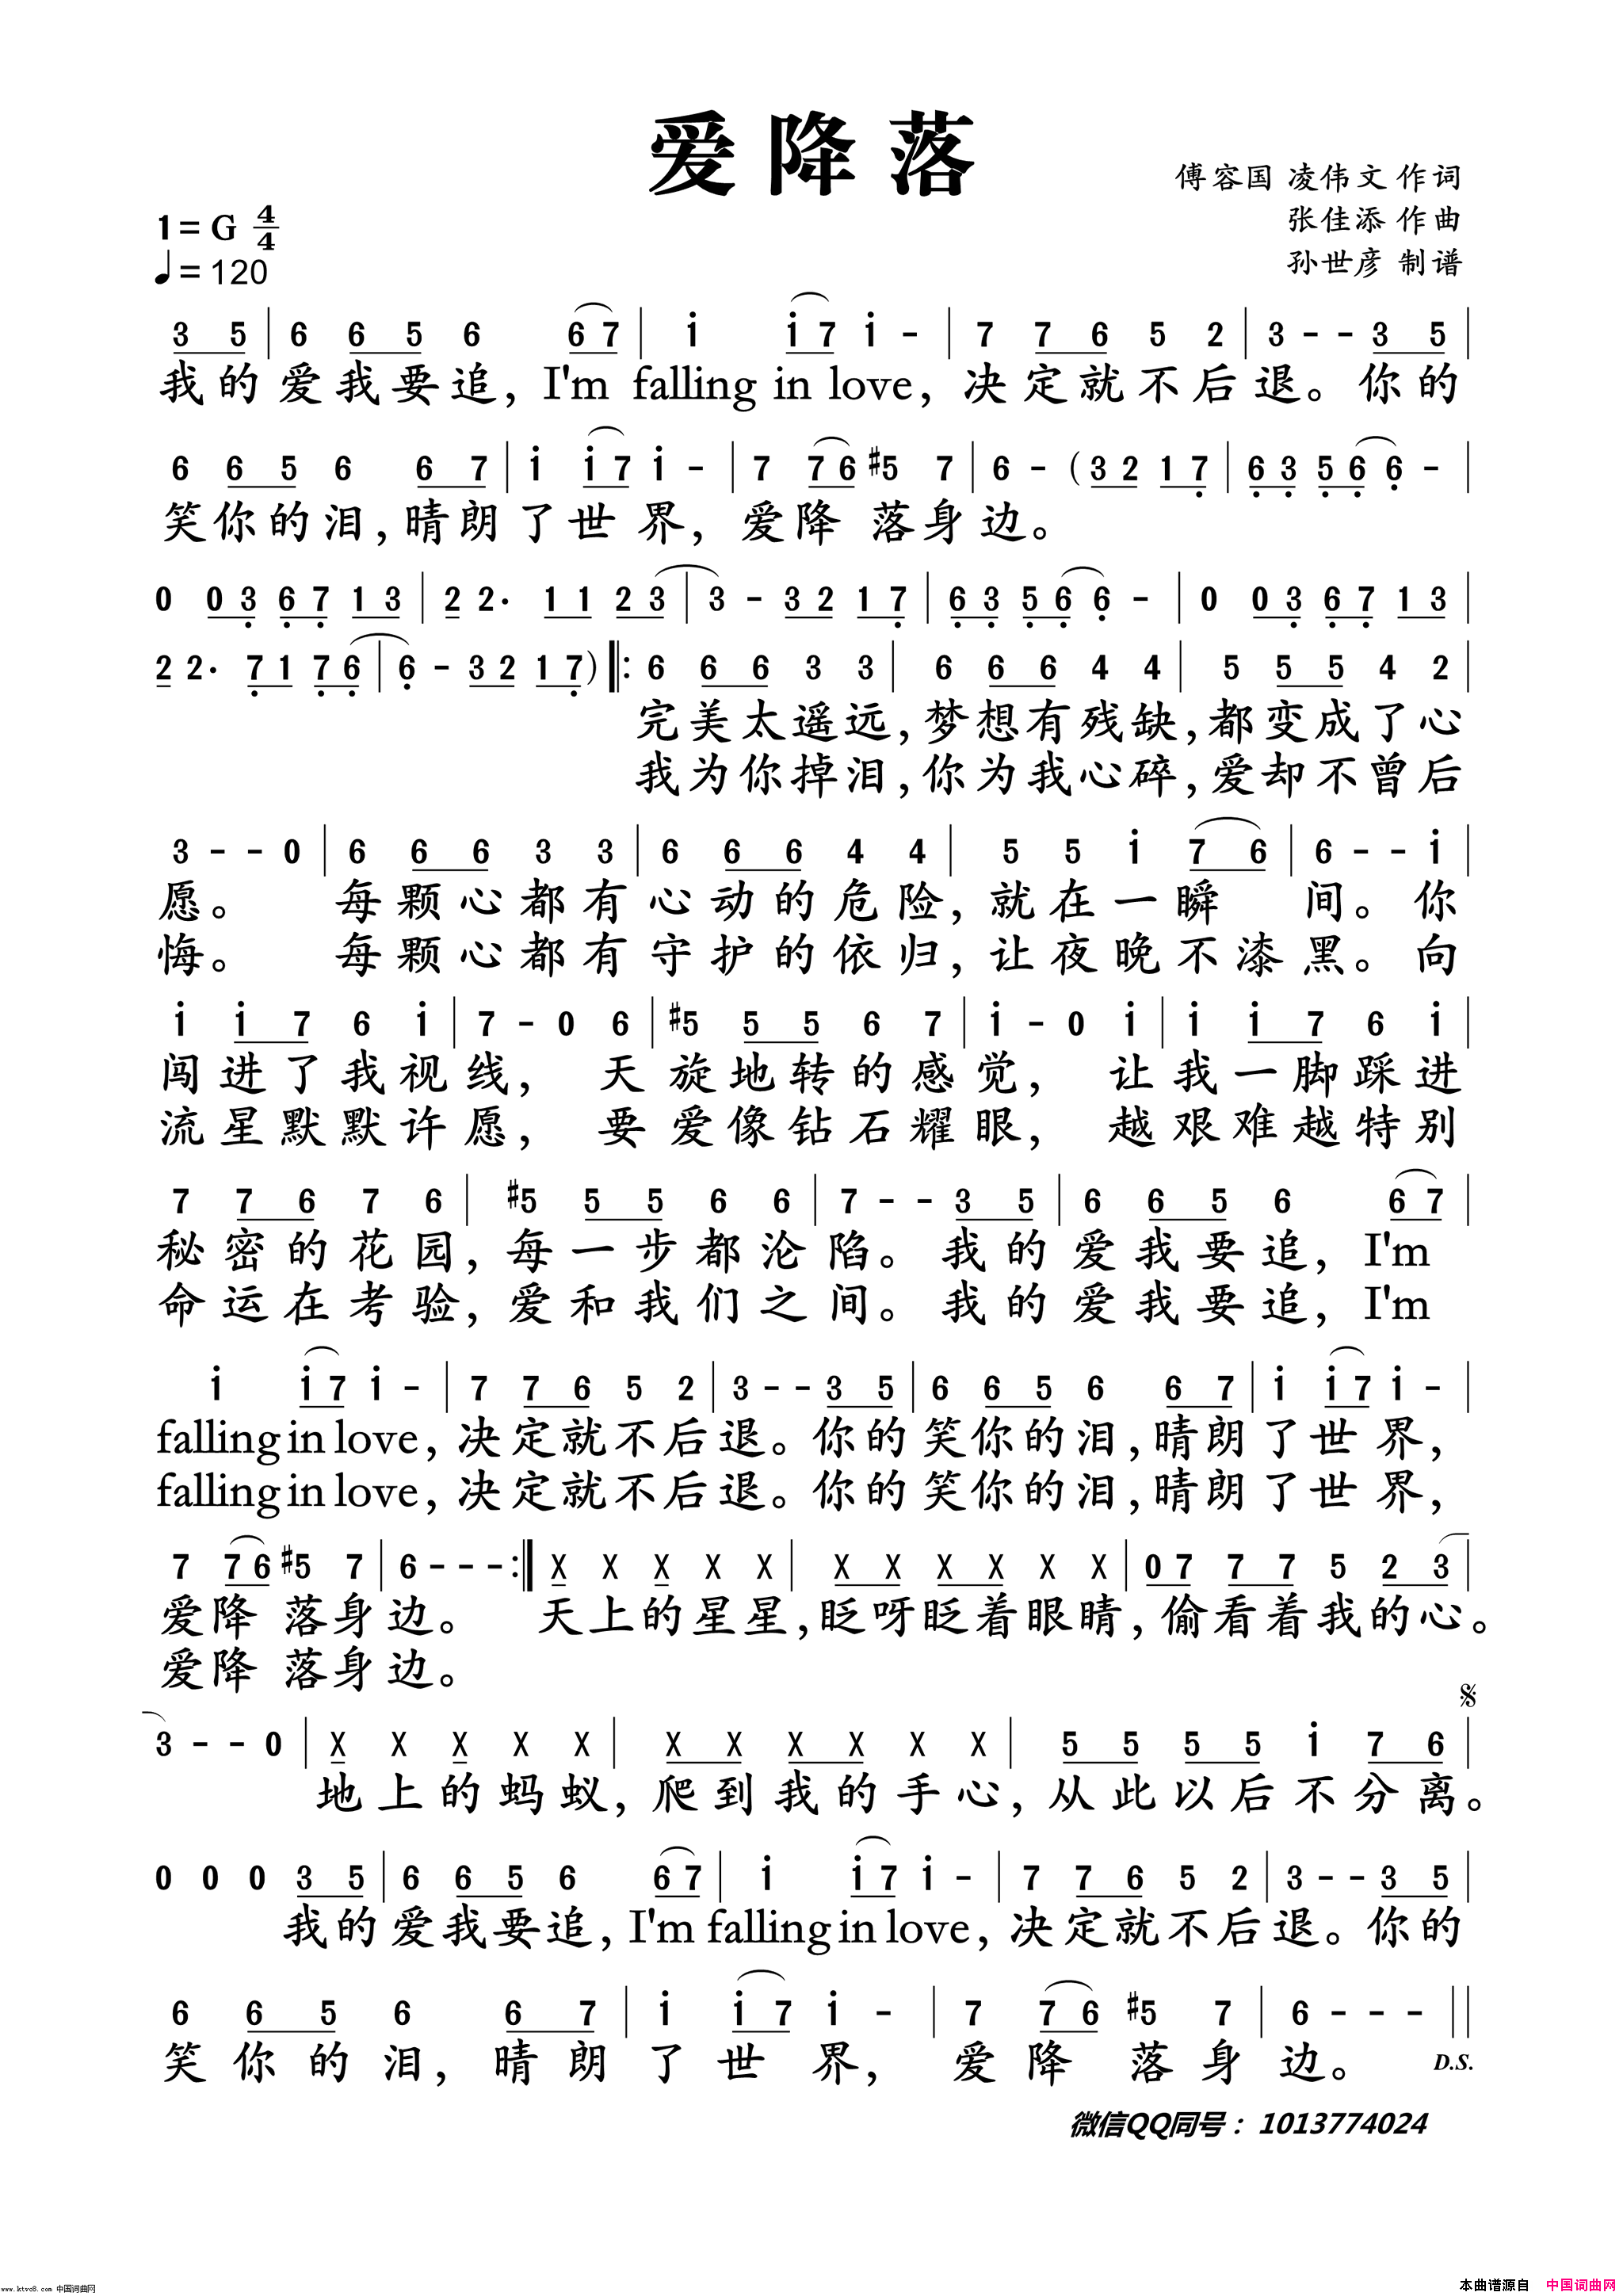 爱降落
傅容国 凌伟文 作词
1=G 4/4
张佳添 作曲
♩=120
孙世彦 制谱
3 5 | 6 6 5 6 6 7 | i i 7 i - | 7 7 6 5 2 | 3 - - 3 5 |
我的爱我要追，I'm falling in love，决定就不后退。你的
6 6 5 6 6 7 | i i 7 i - | 7 7 6 #5 7 | 6 - (3 2 1 7 | 6 3 5 6 6 - |
笑你的泪，晴朗了世界，爱降落身边。
0 0 3 6 7 1 3 | 2 2. 1 1 2 3 | 3 - 3 2 1 7 | 6 3 5 6 6 - | 0 0 3 6 7 1 3 |
2 2. 7 1 7 6 | 6 - 3 2 1 7) ‖: 6 6 6 3 3 | 6 6 6 4 4 | 5 5 5 4 2 |
完美太遥远，梦想有残缺，都变成了心
我为你掉泪，你为我心碎，爱却不曾后
3 - - 0 | 6 6 6 3 3 | 6 6 6 4 4 | 5 5 i 7 6 | 6 - - i |
愿。 每颗心都有心动的危险，就在一瞬间。你
悔。 每颗心都有守护的依归，让夜晚不漆黑。向
i i 7 6 i | 7 - 0 6 | #5 5 5 6 7 | i - 0 i | i i 7 6 i |
闯进了我视线， 天旋地转的感觉， 让我一脚踩进
流星默默许愿， 要爱像钻石耀眼， 越艰难越特别
7 7 6 7 6 | #5 5 5 6 6 | 7 - - 3 5 | 6 6 5 6 6 7 |
秘密的花园，每一步都沦陷。我的爱我要追，I'm
命运在考验，爱和我们之间。我的爱我要追，I'm
i i 7 i - | 7 7 6 5 2 | 3 - - 3 5 | 6 6 5 6 6 7 | i i 7 i - |
falling in love，决定就不后退。你的笑你的泪，晴朗了世界，
falling in love，决定就不后退。你的笑你的泪，晴朗了世界，
7 7 6 #5 7 | 6 - - - :‖ X X X X X | X X X X X X | 0 7 7 7 5 2 3 |
爱降落身边。 天上的星星，眨呀眨着眼睛，偷看着我的心。
爱降落身边。
3 - - 0 | X X X X X | X X X X X X | 5 5 5 5 i 7 6 |
地上的蚂蚁，爬到我的手心，从此以后不分离。
0 0 0 3 5 | 6 6 5 6 6 7 | i i 7 i - | 7 7 6 5 2 | 3 - - 3 5 |
我的爱我要追，I'm falling in love，决定就不后退。你的
6 6 5 6 6 7 | i i 7 i - | 7 7 6 #5 7 | 6 - - - ‖
笑你的泪，晴朗了世界，爱降落身边。 D.S.
微信QQ同号：1013774024
www.ktvc8.com 中国词曲网
本曲谱源自 中国词曲网